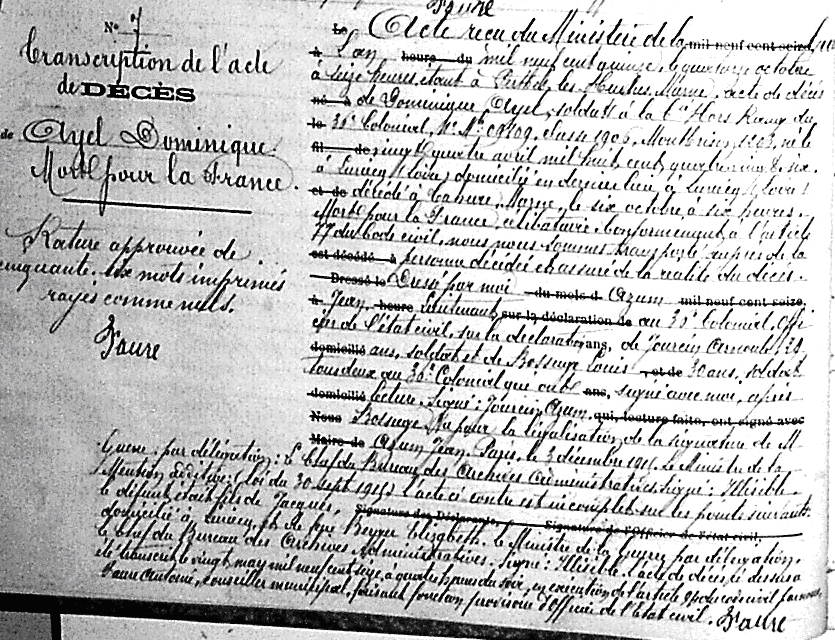 Faure
N°
Transcription de l'acte
de DÉCÈS
de Ayel Dominique
Mort pour la France.
Rature approuvée de
cinquante-six mots imprimés
rayés comme nuls.
Faure
Le Acte reçu du Ministère de la mil neuf cent seize,
à L'an heure du mil neuf cent quinze, le quatorze octobre
à seize heures, étant à Perthes les Hurlus, Marne, acte de décès
né à de Dominique Ayel, soldat à la Cie Hors Rang du
le 30e Colonial, classe 1906, Montbrison, 1203, né le
fil de vingt quatre avril mil huit cent quatre vingt six
à Luriecq (Loire) domicilié en dernier lieu à Luriecq (Loire)
et de décédé à Tahure, Marne, le six octobre à six heures.
Mort pour la France, célibataire. Conformément à l'article
77 du Code civil, nous nous sommes transporté auprès de la
est décédé à personne décédée et assuré de la réalité du décès.
Dressé le Dressé par moi du mois d Azum mil neuf cent seize,
à Jean, heure lieutenant, sur la déclaration de au 30e Colonial, Offi
cier de l'état civil, sur la déclaration ans, de Jourcin
domicilié ans, soldat et de Bossuge Louis et de 30 ans, soldat
tous deux au 30e Colonial qui ont ans, signé avec moi, après
domicilié lecture. Signé: Jourcin, Azum, qui, lecture faite, ont signé avec
Nous Bossuge. Vu pour la légalisation de la signature de M.
Maire de Azum Jean. Paris, le 3 décembre 1915. Le Ministre de la
Guerre: par délégation: le Chef du Bureau des Archives Administratives signé: Illisible.
Mention additive: (loi du 30 sept 1915) l'acte ci contre est incomplet sur les points suivants:
le défunt était fils de Jacques, Signature des Déclarants, Signature de l'Officier de l'état civil,
domicilié à Luriecq, et de Beyer Elisabeth. le Ministre de la Guerre par délégation.
le Chef du Bureau des Archives Administratives, signé: Illisible. l'acte de décès ci dessus a
été transcrit le vingt mai mil neuf cent seize, à quatre heures du soir, en exécution de l'article 94 du code civil par nous,
Faure Antoine, conseiller municipal, faisant fonction provisoire d'Officier de l'Etat civil. Faure